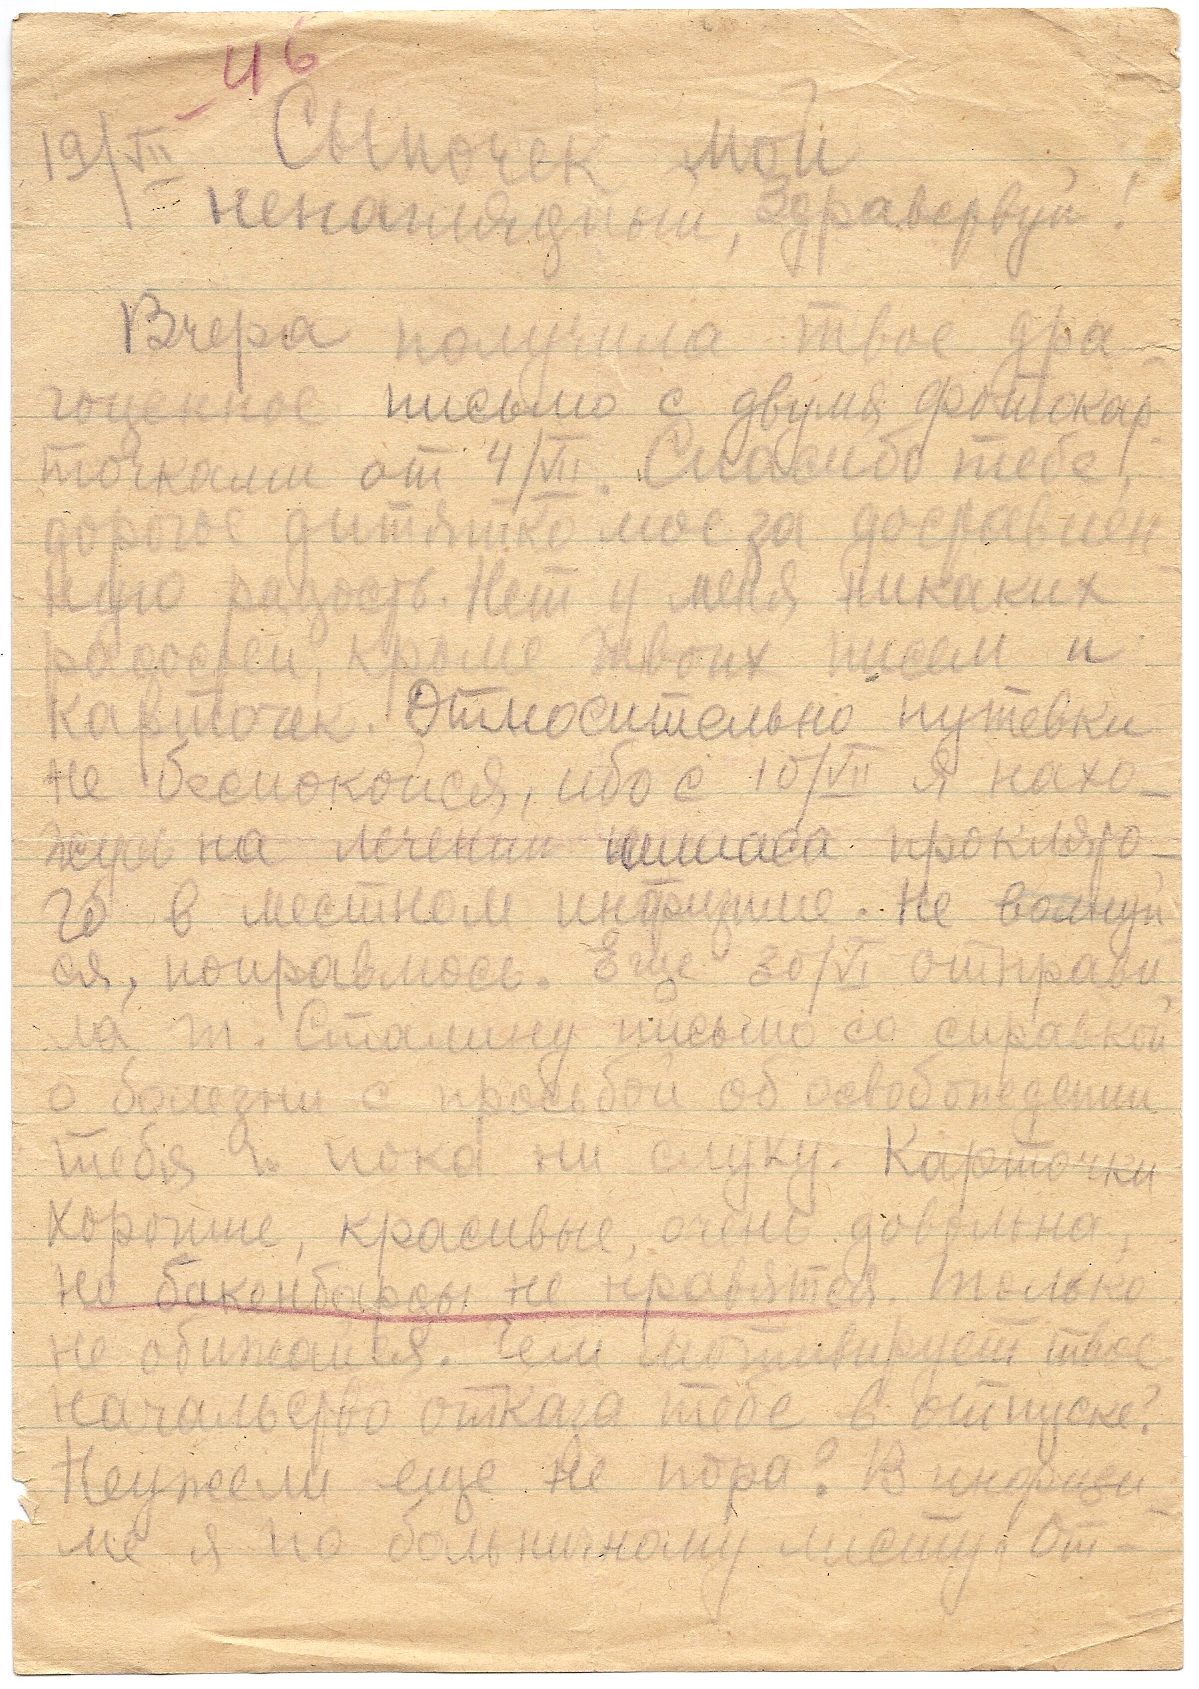 - 46
19/VII Сыночек мой
ненаглядный, Здравствуй!
Вчера получила твое дра-
гоценное письмо с двумя фотокар-
точками от 4/VII. Спасибо тебе,
дорогое дитятко мое за доставлен
ную радость. Нет у меня никаких
радостей, кроме твоих писем и
карточек. Относительно путевки
не беспокойся, ибо с 10/VII я нахо-
жусь на лечении ишиаса проклято-
го в местном инфизме. Не волнуй
ся, поправлюсь. Еще 30/VI отправи
ла т. Сталину письмо со справкой
о болезни с просьбой об освобождении
тебя и пока ни слуху. Карточки
хорошие, красивые, очень довольна,
но бакенбарды не нравятся. Только
не обижайся. Чем мотивирует твое
начальство отказ тебе в отпуске?
Неужели еще не пора? В инфизи
ме я по больничному листу. От-